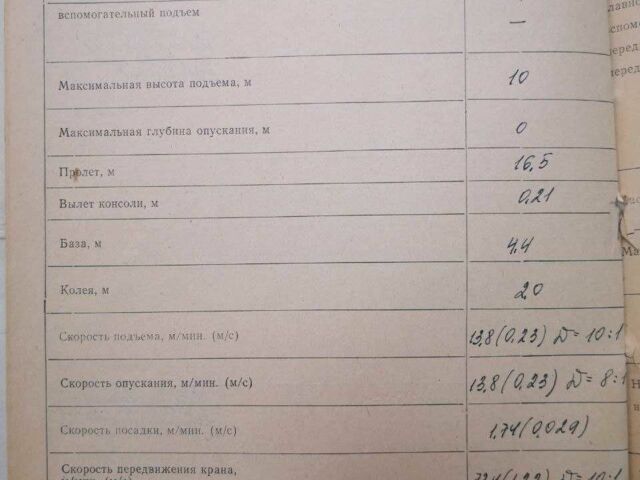 вспомогательный подъем —
Максимальная высота подъема, м 10
Максимальная глубина опускания, м 0
Пролет, м 16,5
Вылет консоли, м 0,21
База, м 4,4
Колея, м 2,0
Скорость подъема, м/мин. (м/с) 13,8 (0,23) D = 10:1
Скорость опускания, м/мин. (м/с) 13,8 (0,23) D = 8:1
Скорость посадки, м/мин. (м/с) 1,74 (0,029)
Скорость передвижения крана,